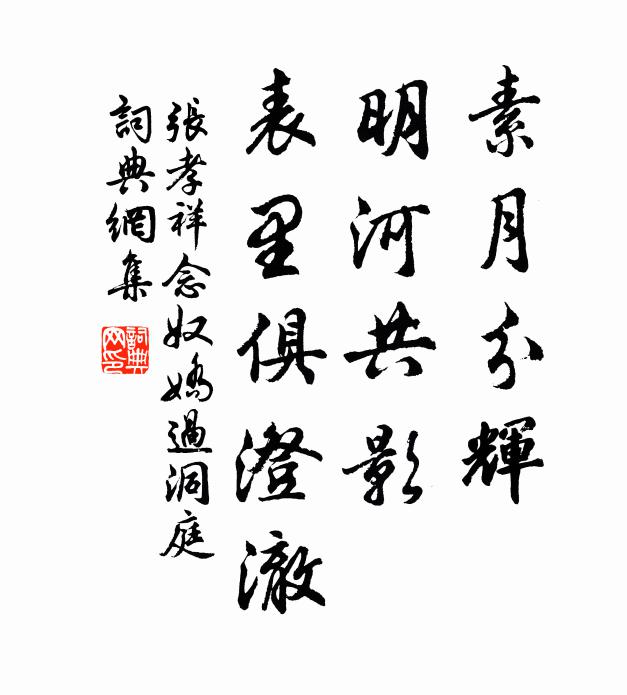 素月分輝
明河共影
表里俱澄澈
張孝祥念奴嬌過洞庭
詞典網集
詞典
网印